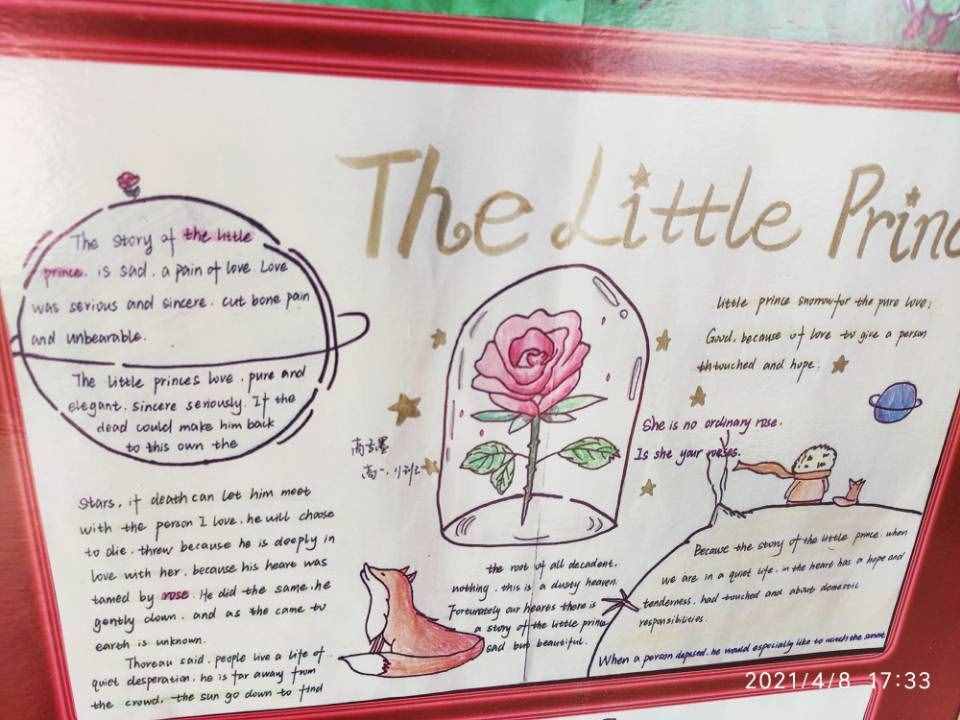 The Little Princ
The story of the little
prince. is sad. a pain of love. Love
was serious and sincere. cut bone pain
and unbearable.
The little princes love. pure and
elegant. sincere seriously. If the
dead could make him back
to this own the
Stars, if death can let him meet
with the person I love. he will choose
to die. threw because he is deeply in
love with her. because his heart was
tamed by rose. He did the same. he
gently down. and as the came to
earth is unknown.
Thoreau said. people live a life of
quiet desperation. he is far away from
the crowd. the sun go down to find
高一.1班
the root of all decadent.
nothing. this is a dusty heaven.
Fortunately our heares there is
a story of the little prince
sad but beautiful.
little prince snorrow for the pure love;
Good. because of love to give a person
thtouched and hope.
She is no ordinary rose.
Is she your roses.
Because the story of the little prince. when
we are in a quiet life. in the heare has a hope and
tenderness. had touched and about domestic
responsibilities.
When a person depised. he would especially like to watch the sunset
2021/4/8 17:33